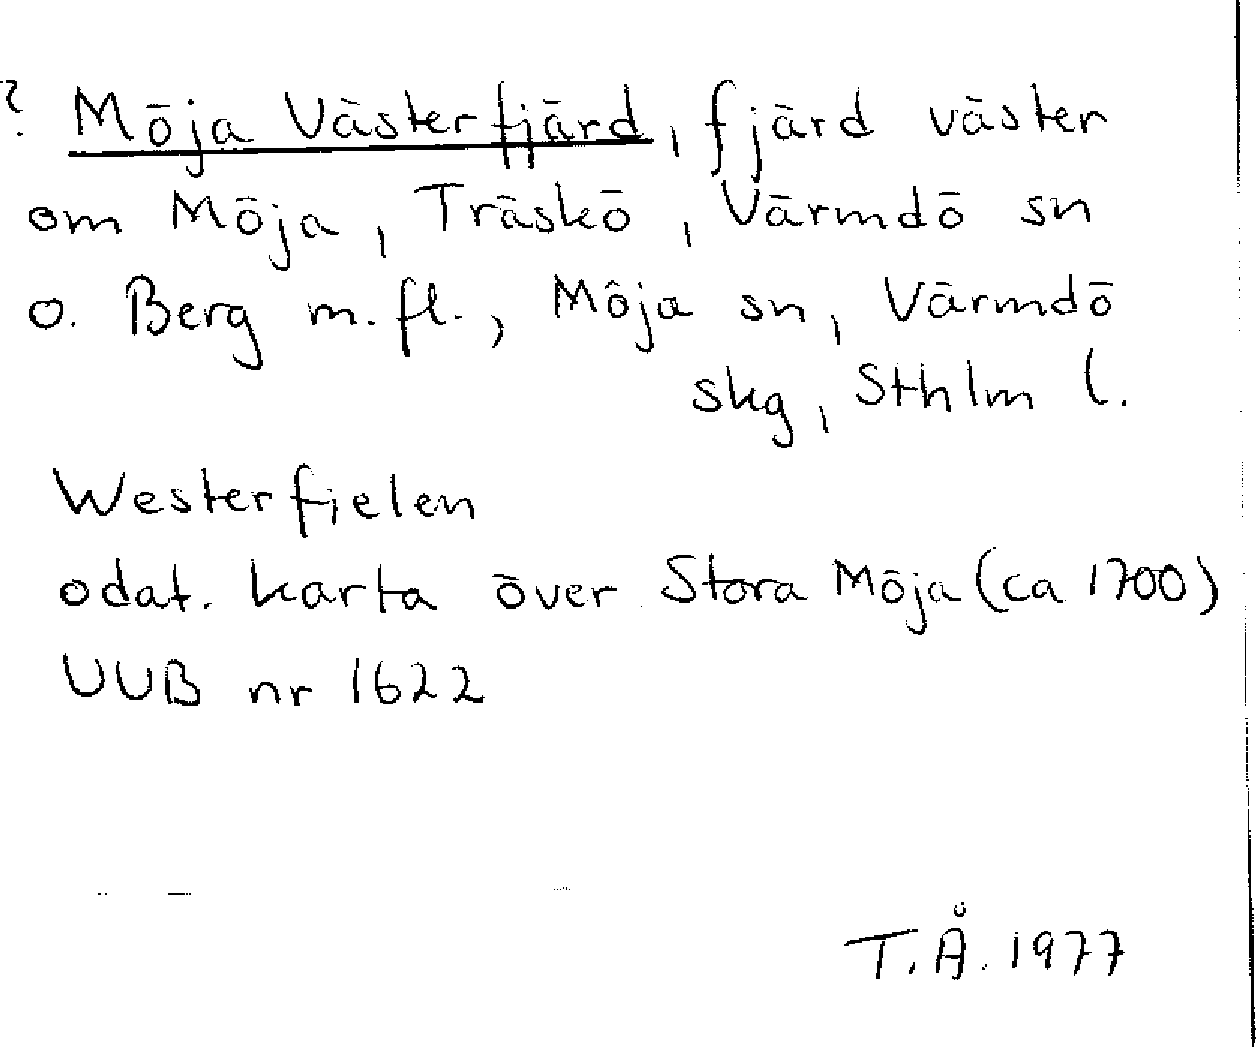 ? Möja Västerfjärd, fjärd väster
om Möja, Träskö, Värmdö sn
o. Berg m.fl., Möja sn, Värmdö
skg, Sthlm l.
Westerfjelen
odat. karta över Stora Möja (ca 1700)
UUB nr 1622
T.Å. 1977